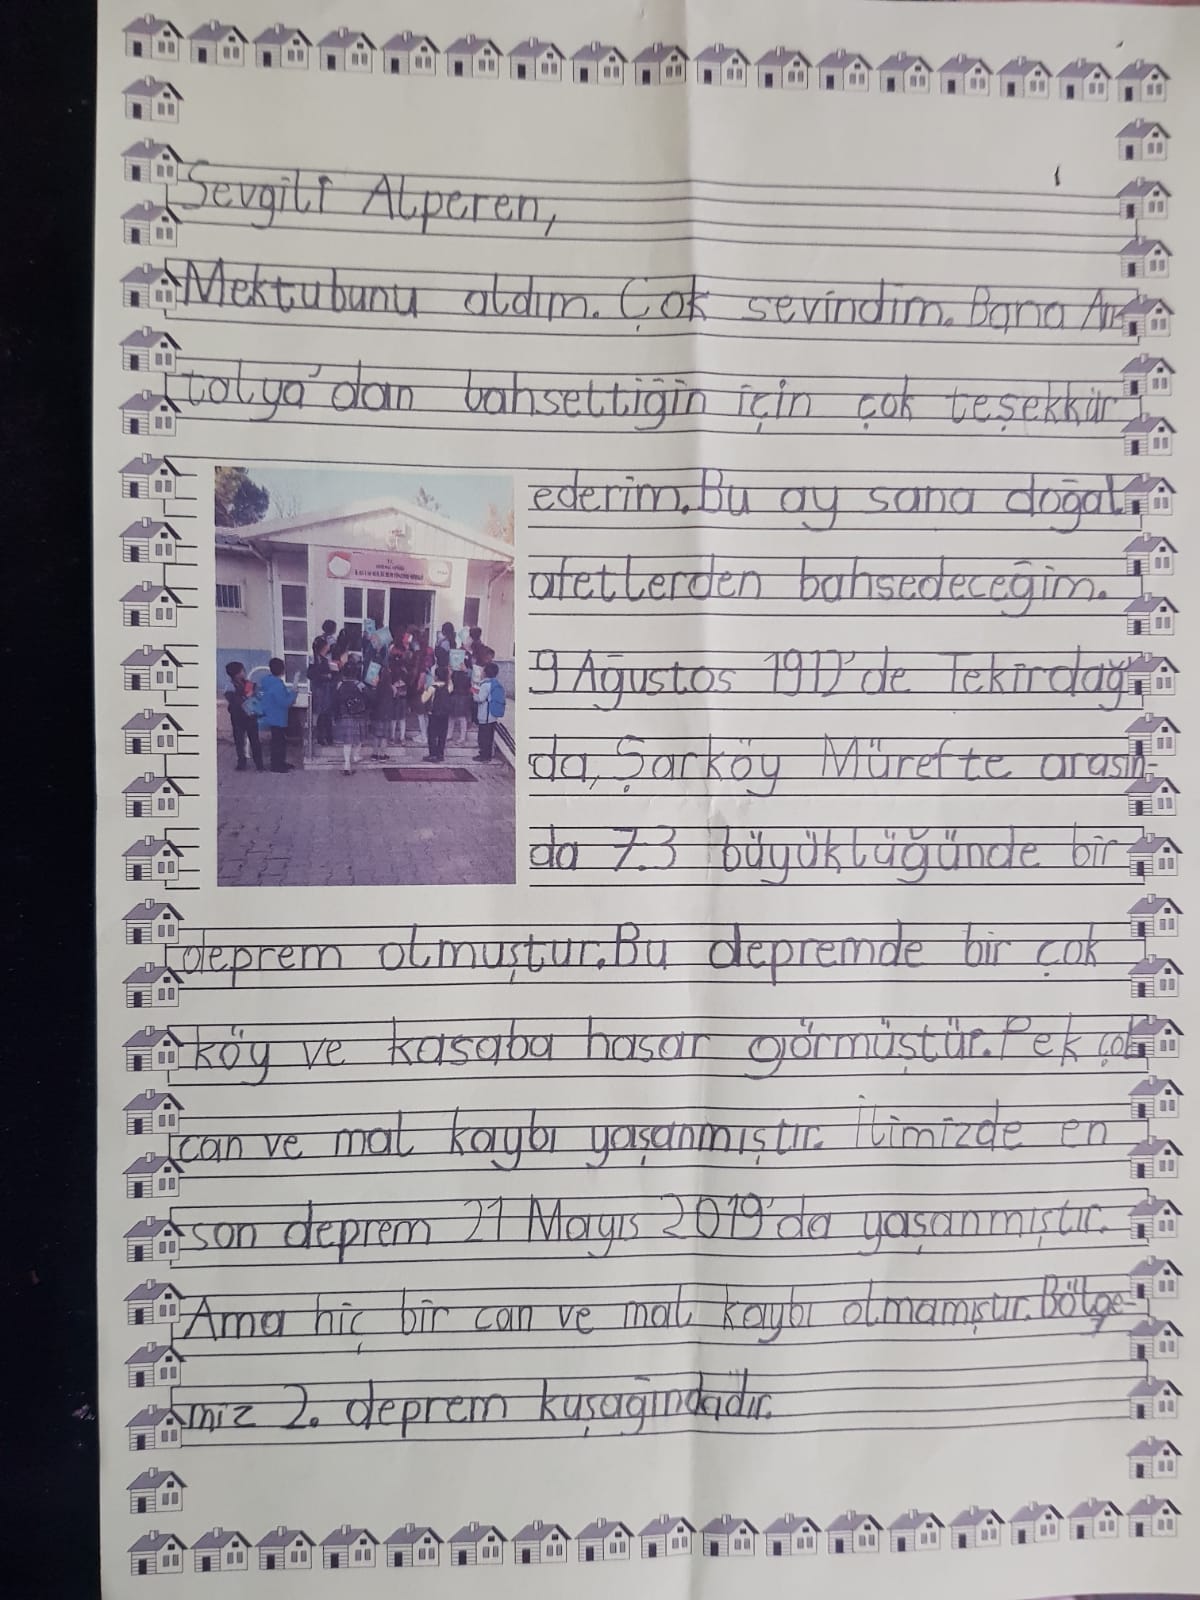 Sevgili Alperen,
Mektubunu aldım. Çok sevindim. Bana An
talya'dan bahsettiğin için çok teşekkür
ederim. Bu ay sana doğal
afetlerden bahsedeceğim.
9 Ağustos 1912'de Tekirdağ'
da, Şarköy Mürefte arasın-
da 7.3 büyüklüğünde bir
deprem olmuştur. Bu depremde bir çok
köy ve kasaba hasar görmüştür. Pek çok
can ve mal kaybı yaşanmıştır. İlimizde en
son deprem 21 Mayıs 2019'da yaşanmıştır.
Ama hiç bir can ve mal kaybı olmamıştır. Bölge-
miz 2. deprem kuşağındadır.